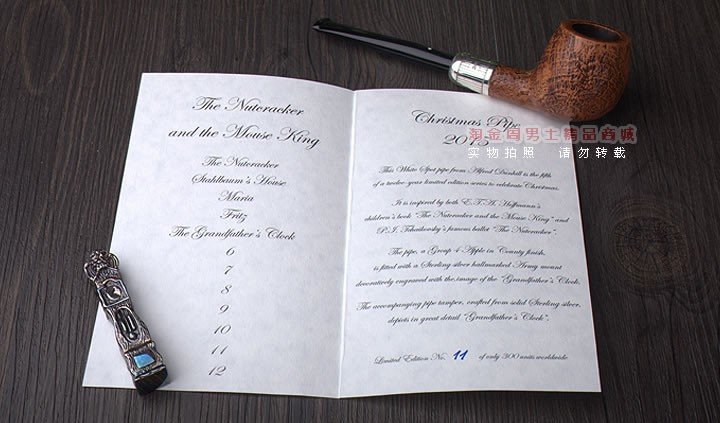 The Nutcracker
and the Mouse King
The Nutcracker
Stahlbaum's House
Maria
Fritz
The Grandfather's Clock
6
7
8
9
10
11
12
Christmas Pipe
2015
This White Spot pipe from Alfred Dunhill is the fifth
of a twelve-year limited edition series to celebrate Christmas.
It is inspired by both E.T.A. Hoffmann's
children's book "The Nutcracker and the Mouse King" and
P.I. Tchaikovsky's famous ballet "The Nutcracker".
The pipe, a Group 4 Apple in County finish,
is fitted with a Sterling silver hallmarked Army mount
decoratively engraved with the image of the "Grandfather's Clock.
The accompanying pipe tamper, crafted from solid Sterling silver,
depicts in great detail "Grandfather's Clock".
Limited Edition No. 11 of only 300 units worldwide
淘金阁男士精品商城
实物拍照 请勿转载